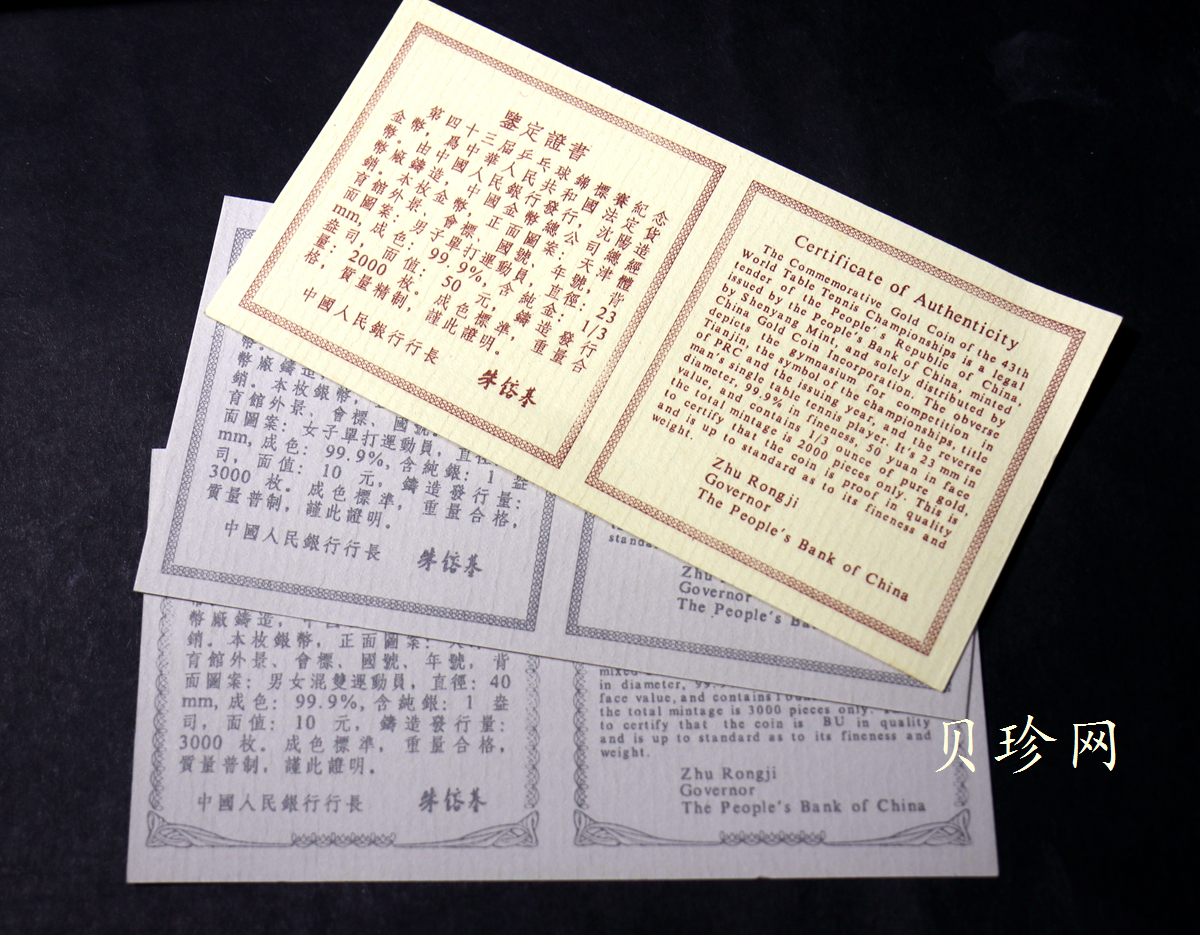 鑒定證書
第四十三屆乒乓球錦標賽紀念
金幣，爲中華人民共和國法定貨
幣，由中國人民銀行發行，沈陽造
幣廠鑄造，中國金幣總公司總經
銷。本枚金幣，正面圖案：天津體
育館外景、會標、國號、年號，背
面圖案：男子單打運動員，直徑：23
mm，成色：99.9%，含純金：1/3
盎司，面值：50元，鑄造發行
量：2000枚。成色標準，重量合
格，質量精制，謹此證明。
中國人民銀行行長
朱镕基
Certificate of Authenticity
The Commemorative Gold Coin of the 43th
World Table Tennis Championships is a legal
tender of the People's Republic of China,
issued by the People's Bank of China, minted
by Shenyang Mint, and solely distributed by
China Gold Coin Incorporation. The obverse
depicts the gymnasium for competition in
Tianjin, the symbol of the championships, title
of PRC and the issuing year, and the reverse
man's single table tennis player. It's 23 mm in
diameter, 99.9% in fineness, 50 yuan in face
value, and contains 1/3 ounce of pure gold,
the total mintage is 2000 pieces only. This is
to certify that the coin is proof in quality
and is up to standard as to its fineness and
weight.
Zhu Rongji
Governor
The People's Bank of China
幣廠鑄造
銷。本枚銀幣，
育館外景、會標、國號、
面圖案：女子單打運動員，直徑
mm，成色：99.9%，含純銀：1 盎
司，面值：10 元，鑄造發行量：
3000 枚。成色標準，重量合格，
質量普制，謹此證明。
中國人民銀行行長
朱镕基
standa
Zhu
Governor
The People's Ba
幣廠鑄造，
銷。本枚銀幣，正面圖案：
育館外景、會標、國號、年號，背
面圖案：男女混雙運動員，直徑：40
mm，成色：99.9%，含純銀：1 盎
司，面值：10 元，鑄造發行量：
3000 枚。成色標準，重量合格，
質量普制，謹此證明。
中國人民銀行行長
朱镕基
mixed
in diameter, 99.
face value, and contains 1 oun
the total mintage is 3000 pieces only.
to certify that the coin is BU in quality
and is up to standard as to its fineness and
weight.
Zhu Rongji
Governor
The People's Bank of China
贝珍网